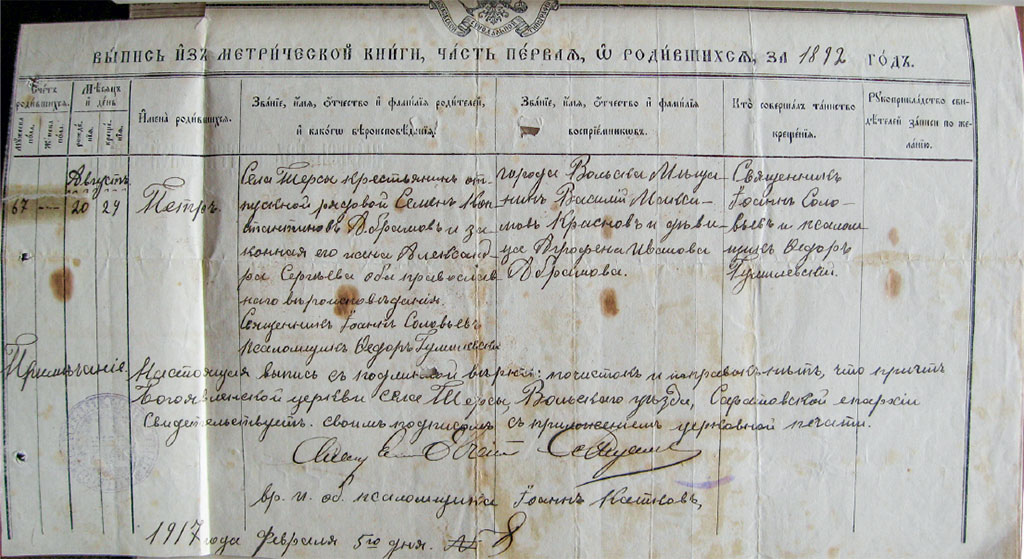 ВЫПИСЬ ИЗЪ МЕТРИЧЕСКОЙ КНИГИ, ЧАСТЬ ПЕРВАЯ, Ѡ РОДИВШИХСЯ, ЗА 1892 ГОДЪ.
Счетъ родившихся.
Мѣсяцъ и день
Мужеска пола.
Женска пола.
рожденія.
крещенія.
Имена родившихся.
Званіе, имя, отчество и фамилія родителей,
и какогѡ вѣроисповѣданія.
Званіе, имя, отчество и фамилія
воспріемниковъ.
Кто совершалъ таинство
крещенія.
Рукоприкладство сви-
дѣтелей записи по же-
ланію.
Августъ
67 --- 20 24
Петръ.
Села Терсы крестьянинъ от-
пускной рядовой Семенъ Кон-
стантиновъ Абрамовъ и за-
конная его жена Александ-
ра Сергѣева оба православ-
наго вѣроисповѣданія.
Священникъ Іоаннъ Соловьевъ
Псаломщикъ Ѳедоръ Тумилевскій
города Вольска Мѣща-
нинъ Василій
Красновъ и дѣви-
ца Агрофена Иванова
Абрамова.
Священникъ
Іоаннъ Соло-
вьевъ и псалом-
щикъ Ѳедоръ
Тумилевскій.
Примѣчаніе. Настоящая выпись съ подлинной вѣрна: почистокъ и поправокъ нѣтъ, что причтъ
Богоявленской церкви села Терсы, Вольскаго уѣзда, Саратовской епархіи
Свидѣтельствуетъ своимъ подписомъ съ приложеніемъ церковной печати.
вр. и. об. псаломщика Іоаннъ
1917 года Февраля 5го дня. № 8